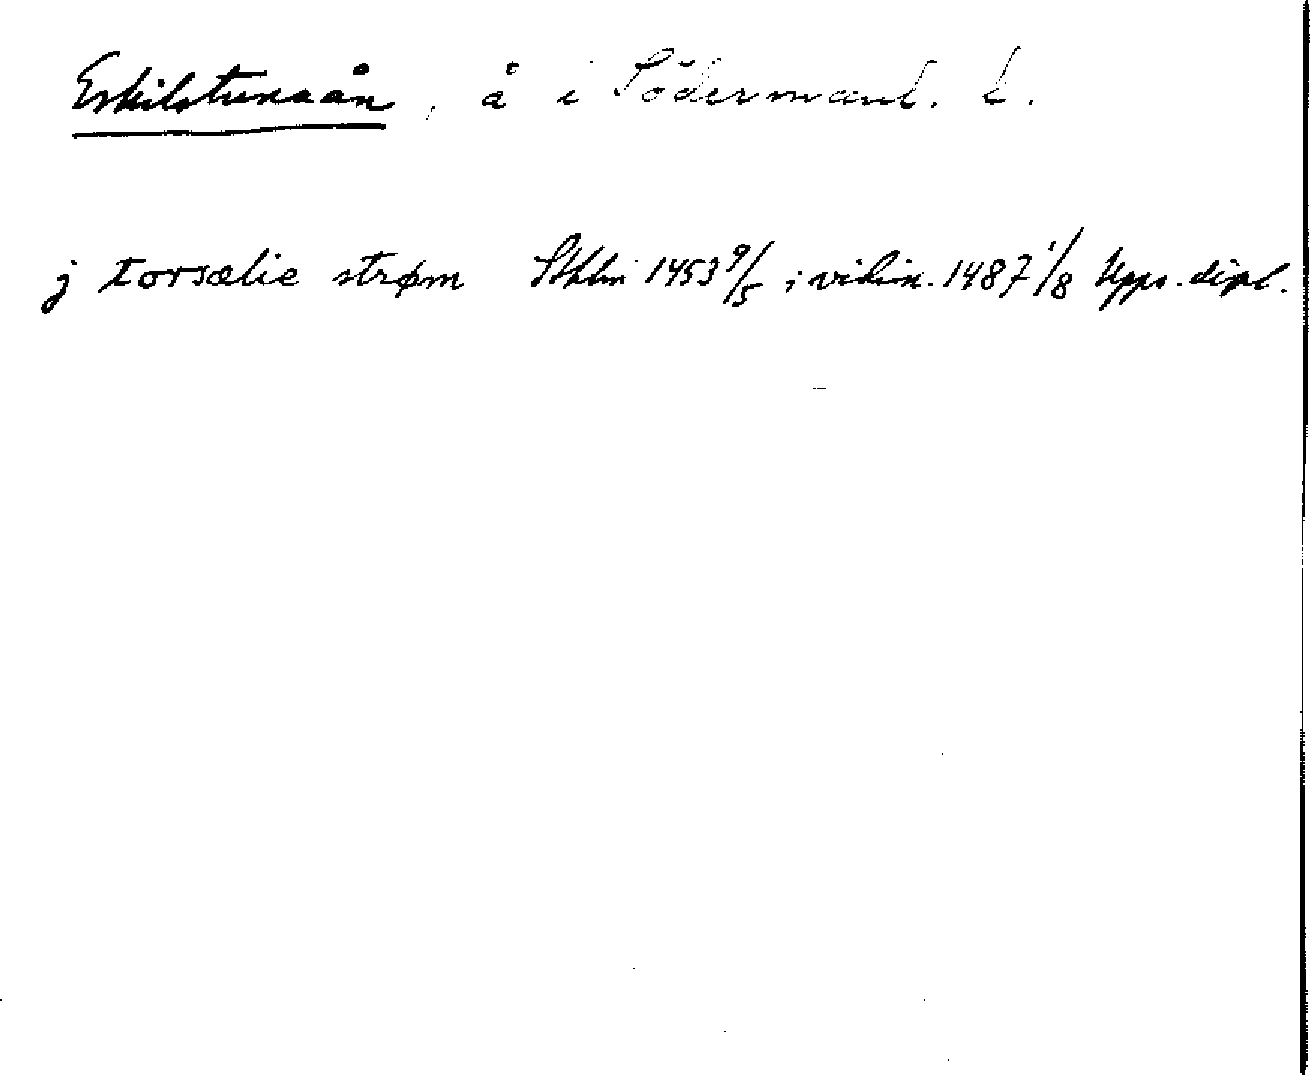 Eskilstunaån, å i Södermanl. l.
j torsælie strøm Sthlm 1453 9/5 i vidim. 1487 1/8 Upps. dipl.